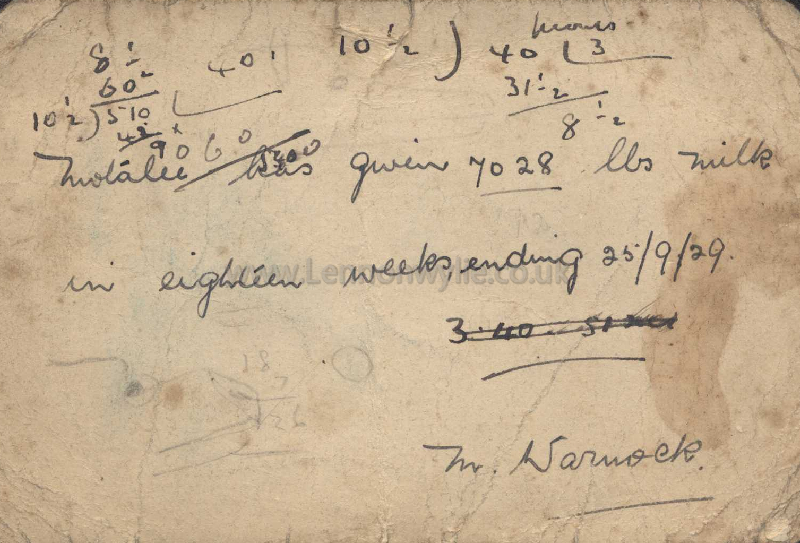 hours
8 1/2
60
10 1/2 ) 510
42
90
40
10 1/2 ) 40 ( 3
31 1/2
8 1/2
60
has given 7028 lbs milk
in eighteen weeks, ending 25/9/29.
www.Lennonwylie.co.uk
3.40
18
7
126
M. Warnock.